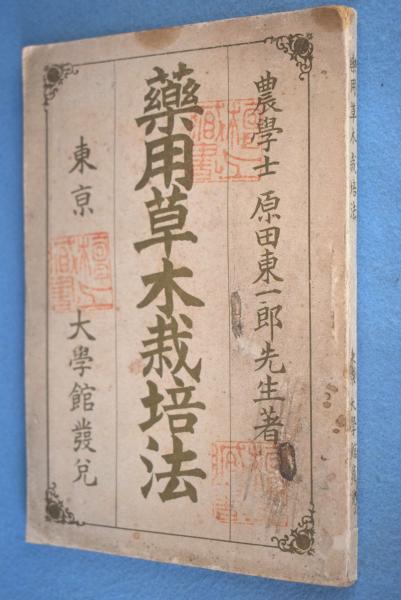 農學士 原田東一郎先生著
藥用草木栽培法
東京 大學館發兌
藥用草木栽培法
東京 大學館發兌